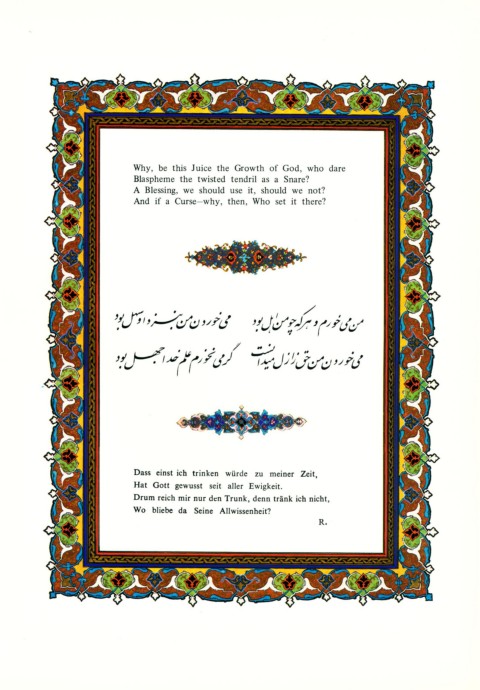 Why, be this Juice the Growth of God, who dare
Blaspheme the twisted tendril as a Snare?
A Blessing, we should use it, should we not?
And if a Curse—why, then, Who set it there?
من می خورم و هر که چو من اهل بود می خوردن من بنزد او سهل بود
می خوردن من حق ز ازل میدانست گر می نخورم علم خدا جهل بود
Dass einst ich trinken würde zu meiner Zeit,
Hat Gott gewusst seit aller Ewigkeit.
Drum reich mir nur den Trunk, denn tränk ich nicht,
Wo bliebe da Seine Allwissenheit?
R.